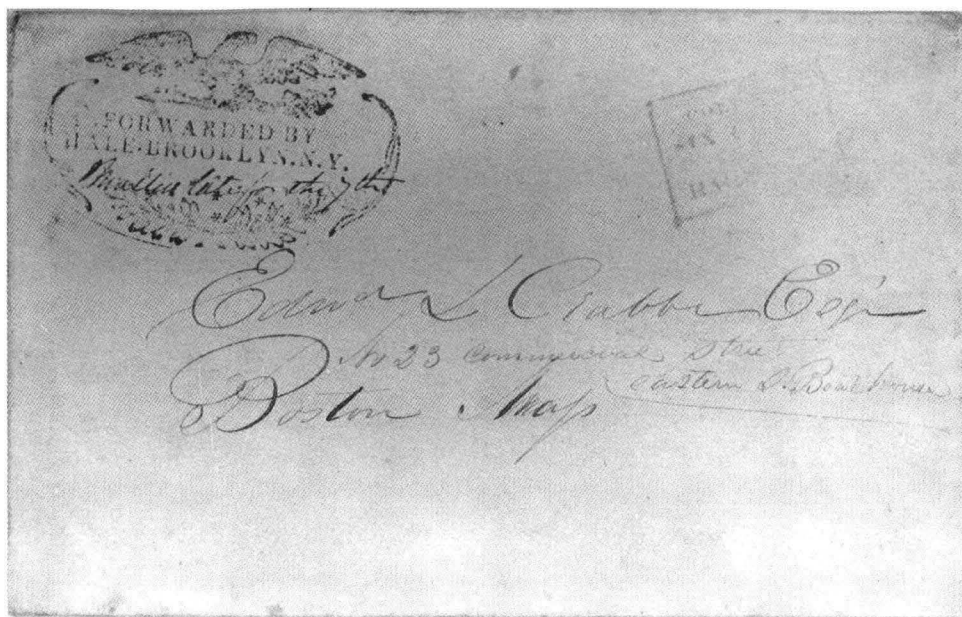 FORWARDED BY
HALE·BROOKLYN.N.Y.
late for the 7th
Edwd L Crabb Esqr
No 23 commercial Street
eastern S. Boat house
Boston Mass